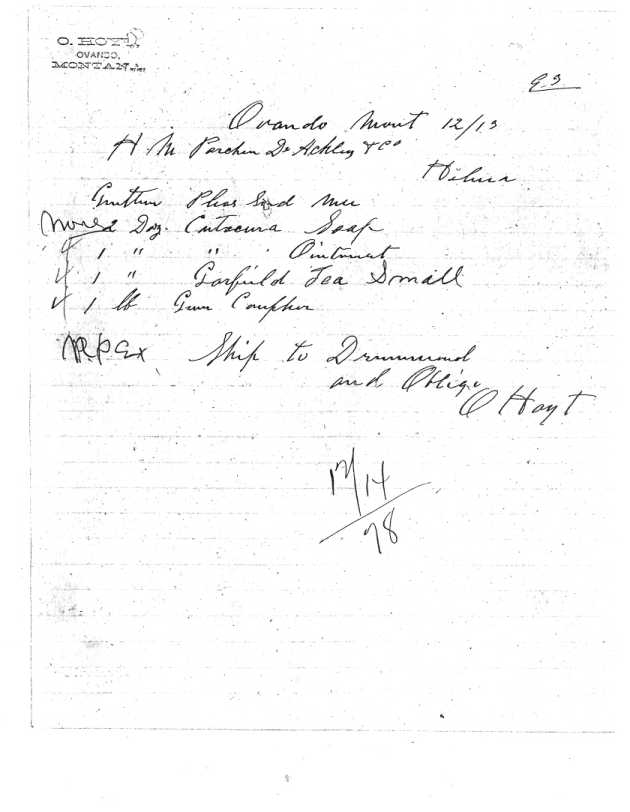 O. HOYT,
OVANDO,
MONTANA.
Ovando Mont 12/13
H. M Parchen D &
Helena
Gentlemen Pleas Send me
2 Doz. Cuticura Soap
1 " " Ointment
1 " Garfield Tea Small
1 lb Gum Camphor
Ship to Drummond
and Oblige
O Hoyt
12/14
98